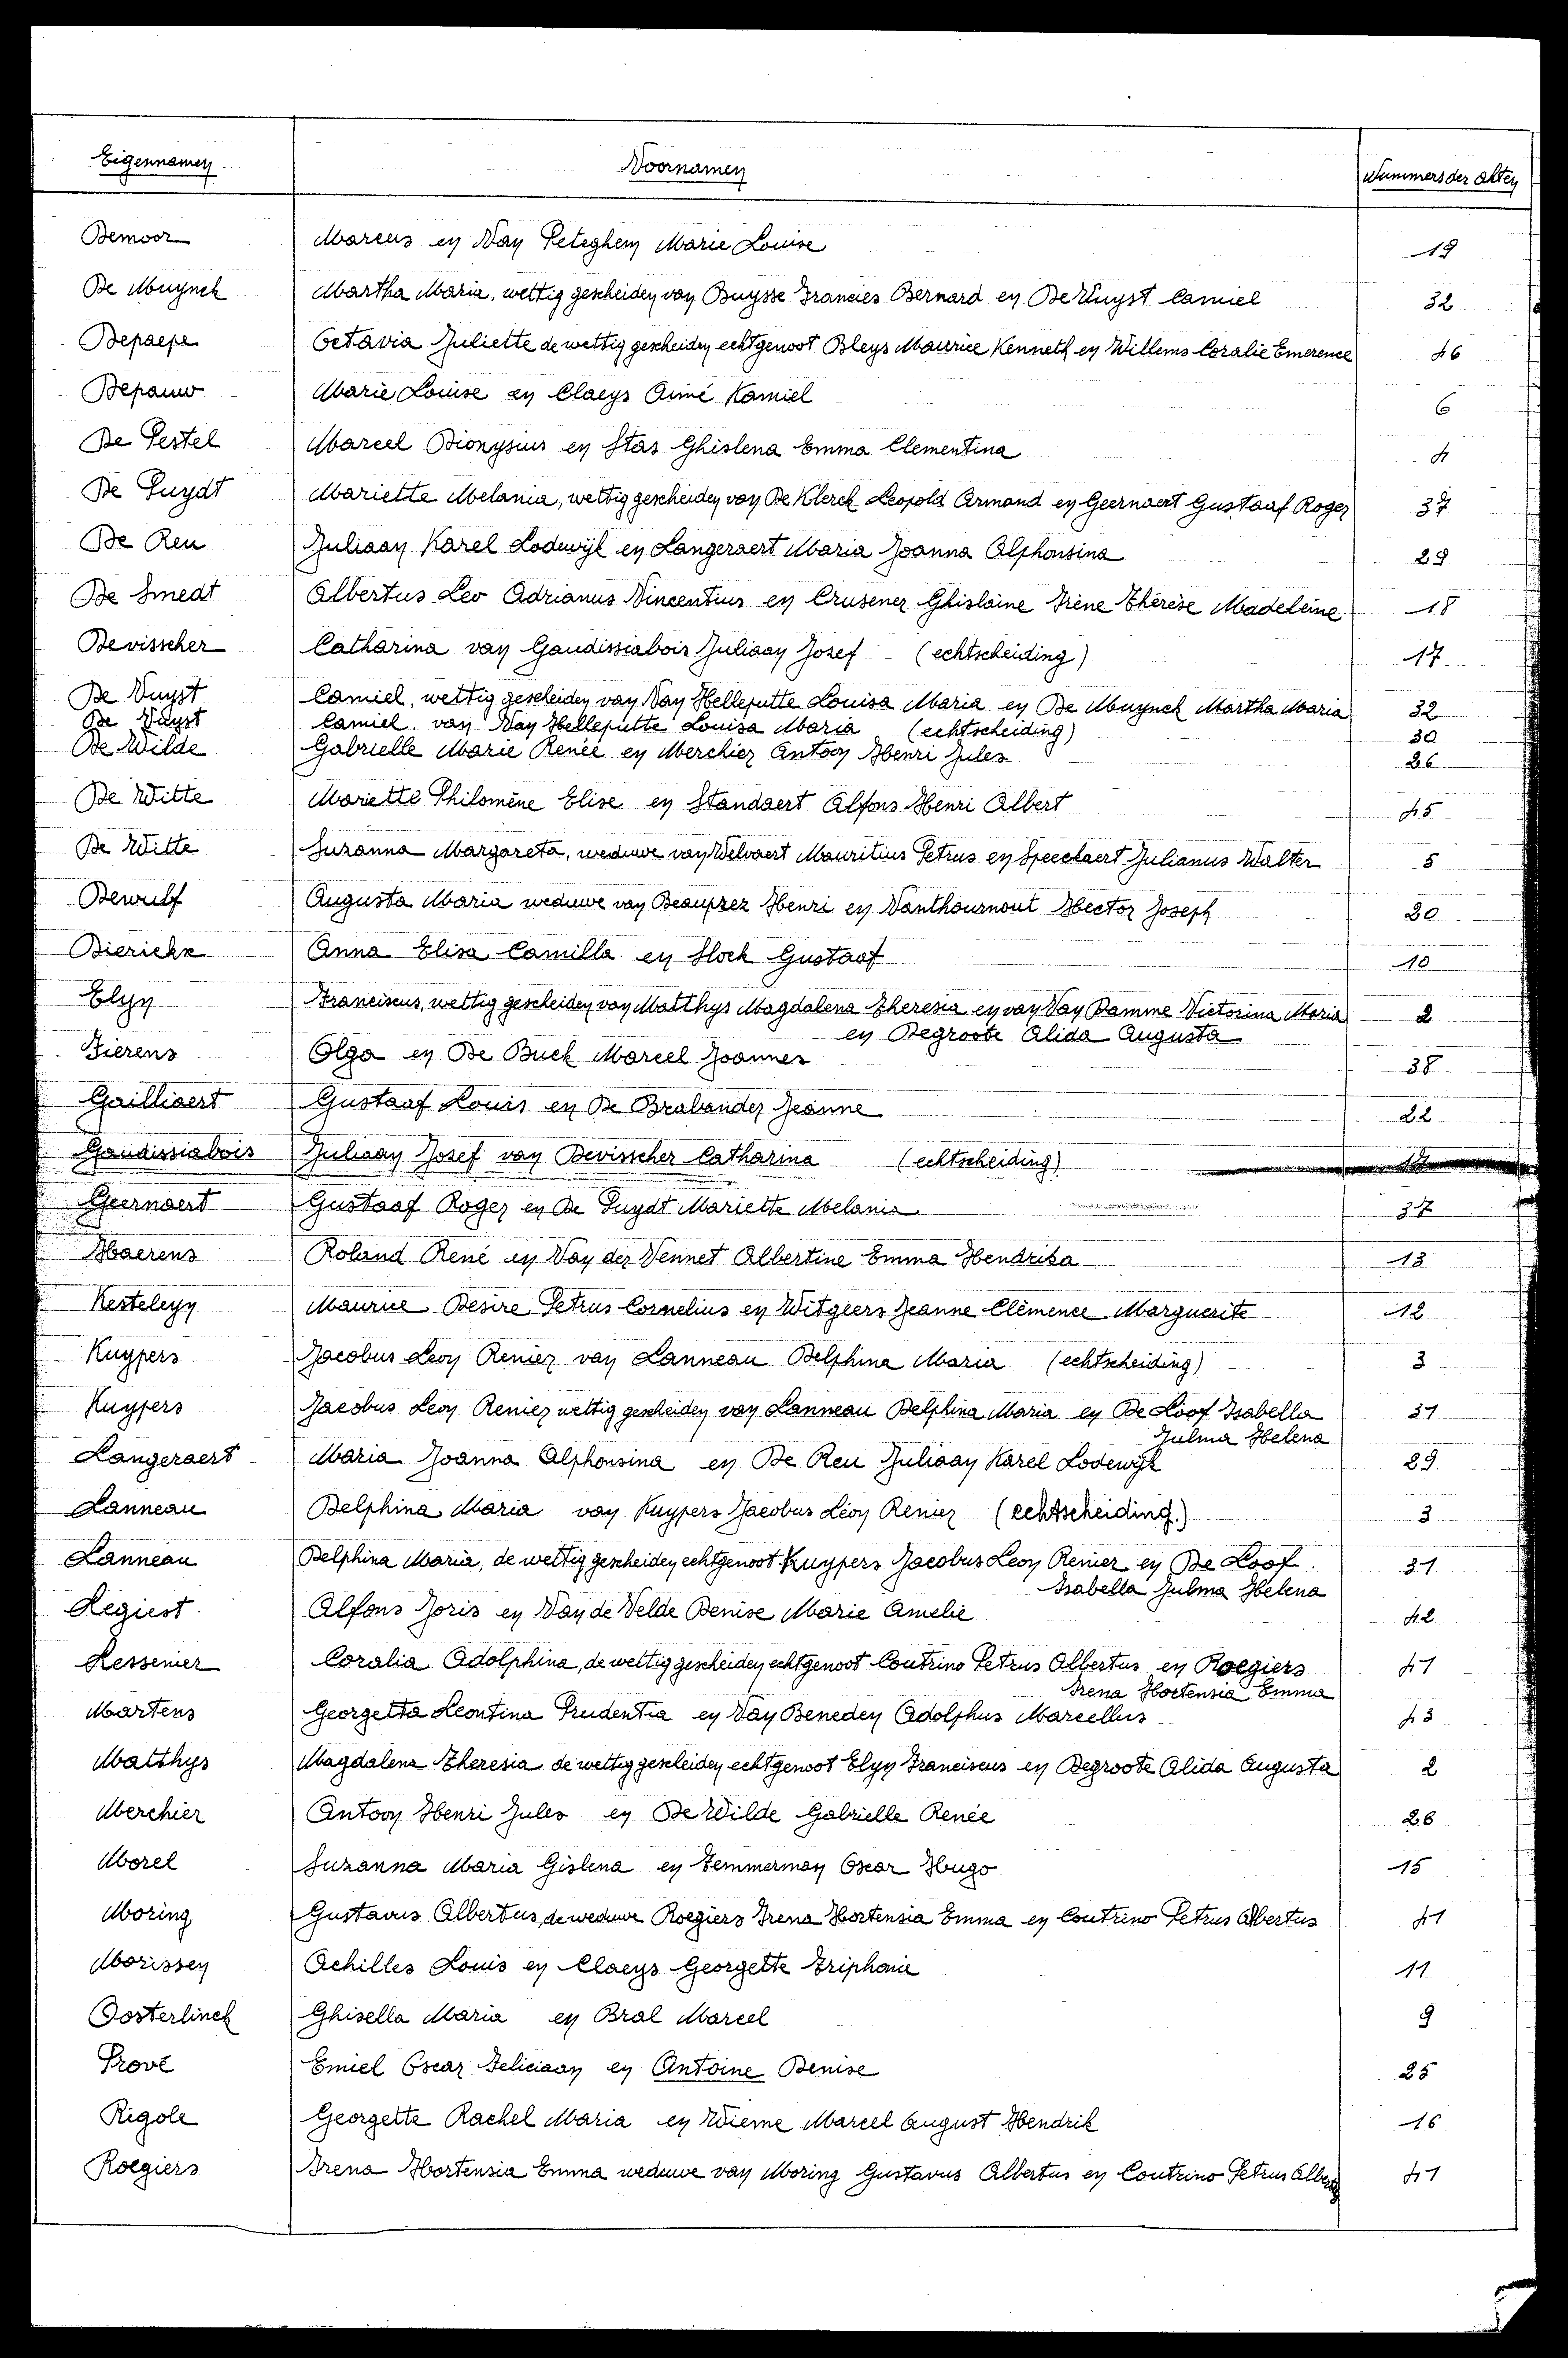 Eigennamen Voornamen Nummers der akten
Demoor Marcus en Van Peteghem Marie Louise 19
De Muynck Martha Maria, wettig gescheiden van Buysse Francies Bernard en De Vuyst Camiel 32
Depaepe Octavia Juliette de wettig gescheiden echtgenoot Bleys Maurice Kenneth en Willems Coralie Emerence 46
Depauw Marie Louise en Claeys Aimé Kamiel 6
De Pestel Marcel Dionysius en Stas Ghislena Emma Clementina 4
De Puydt Mariette Melania, wettig gescheiden van De Klerck Leopold Armand en Geernaert Gustaaf Roger 37
De Reu Juliaan Karel Lodewijk en Langeraert Maria Joanna Alphonsina 29
De Smedt Albertus Leo Adrianus Vincentius en Crusener Ghislaine Irène Thérèse Madeleine 18
Devisscher Catharina van Gaudissiabois Juliaan Josef (echtscheiding) 17
De Vuyst Camiel, wettig gescheiden van Van Helleputte Louisa Maria en De Muynck Martha Maria 32
De Vuyst Camiel. van Van Helleputte Louisa Maria (echtscheiding) 30
De Wilde Gabrielle Marie Renée en Merchier Antoon Henri Jules 26
De Witte Mariette Philomène Elise en Standaert Alfons Henri Albert 45
De Witte Suzanna Margareta, weduwe van Welvaert Mauritius Petrus en Speeckaert Julianus Walter 5
Dewulf Augusta Maria weduwe van Beauprez Henri en Vanthournout Hector Joseph 20
Dierickx Anna Elisa Camilla en Slock Gustaaf 10
Elyn Franciscus, wettig gescheiden van Matthys Magdalena Theresia en van Van Damme Victorina Maria 2
en Degroote Alida Augusta
Fierens Olga en De Buck Marcel Joannes 38
Gailliaert Gustaaf Louis en De Brabander Jeanne 22
Gaudissiabois Juliaan Josef van Devisscher Catharina (echtscheiding) 17
Geernaert Gustaaf Roger en De Puydt Mariette Melania 37
Haerens Roland René en Van der Vennet Albertine Emma Hendrika 13
Kesteleyn Maurice Desire Petrus Cornelius en Witgeers Jeanne Clémence Marguerite 12
Kuypers Jacobus Leon Renier van Lanneau Delphina Maria (echtscheiding) 3
Kuypers Jacobus Leon Renier wettig gescheiden van Lanneau Delphina Maria en De Loof Isabella 31
Julma Helena
Langeraert Maria Joanna Alphonsina en De Reu Juliaan Karel Lodewijk 29
Lanneau Delphina Maria van Kuypers Jacobus Léon Renier (echtscheiding.) 3
Lanneau Delphina Maria, de wettig gescheiden echtgenoot Kuypers Jacobus Leon Renier en De Loof. 31
Isabella Julma Helena
Legiest Alfons Joris en Van de Velde Denise Marie Amelie 42
Lessenier Coralia Adolphina, de wettig gescheiden echtgenoot Coutrino Petrus Albertus en Roegiers 41
Irena Hortensia Emma
Martens Georgetta Leontina Prudentia en Van Beneden Adolphus Marcellus 43
Matthys Magdalena Theresia de wettig gescheiden echtgenoot Elyn Franciscus en Degroote Alida Augusta 2
Merchier Antoon Henri Jules en De Wilde Gabrielle Renée 26
Morel Suzanna Maria Gislena en Temmerman Oscar Hugo 15
Moring Gustavus Albertus, de weduwe Roegiers Irena Hortensia Emma en Coutrino Petrus Albertus 41
Morissen Achilles Louis en Claeys Georgette Triphonie 11
Oosterlinck Ghisella Maria en Bral Marcel 9
Prové Emiel Oscar Feliciaan en Antoine Denise 25
Rigole Georgette Rachel Maria en Wieme Marcel August Hendrik 16
Roegiers Irena Hortensia Emma weduwe van Moring Gustavus Albertus en Coutrino Petrus Albertus 41